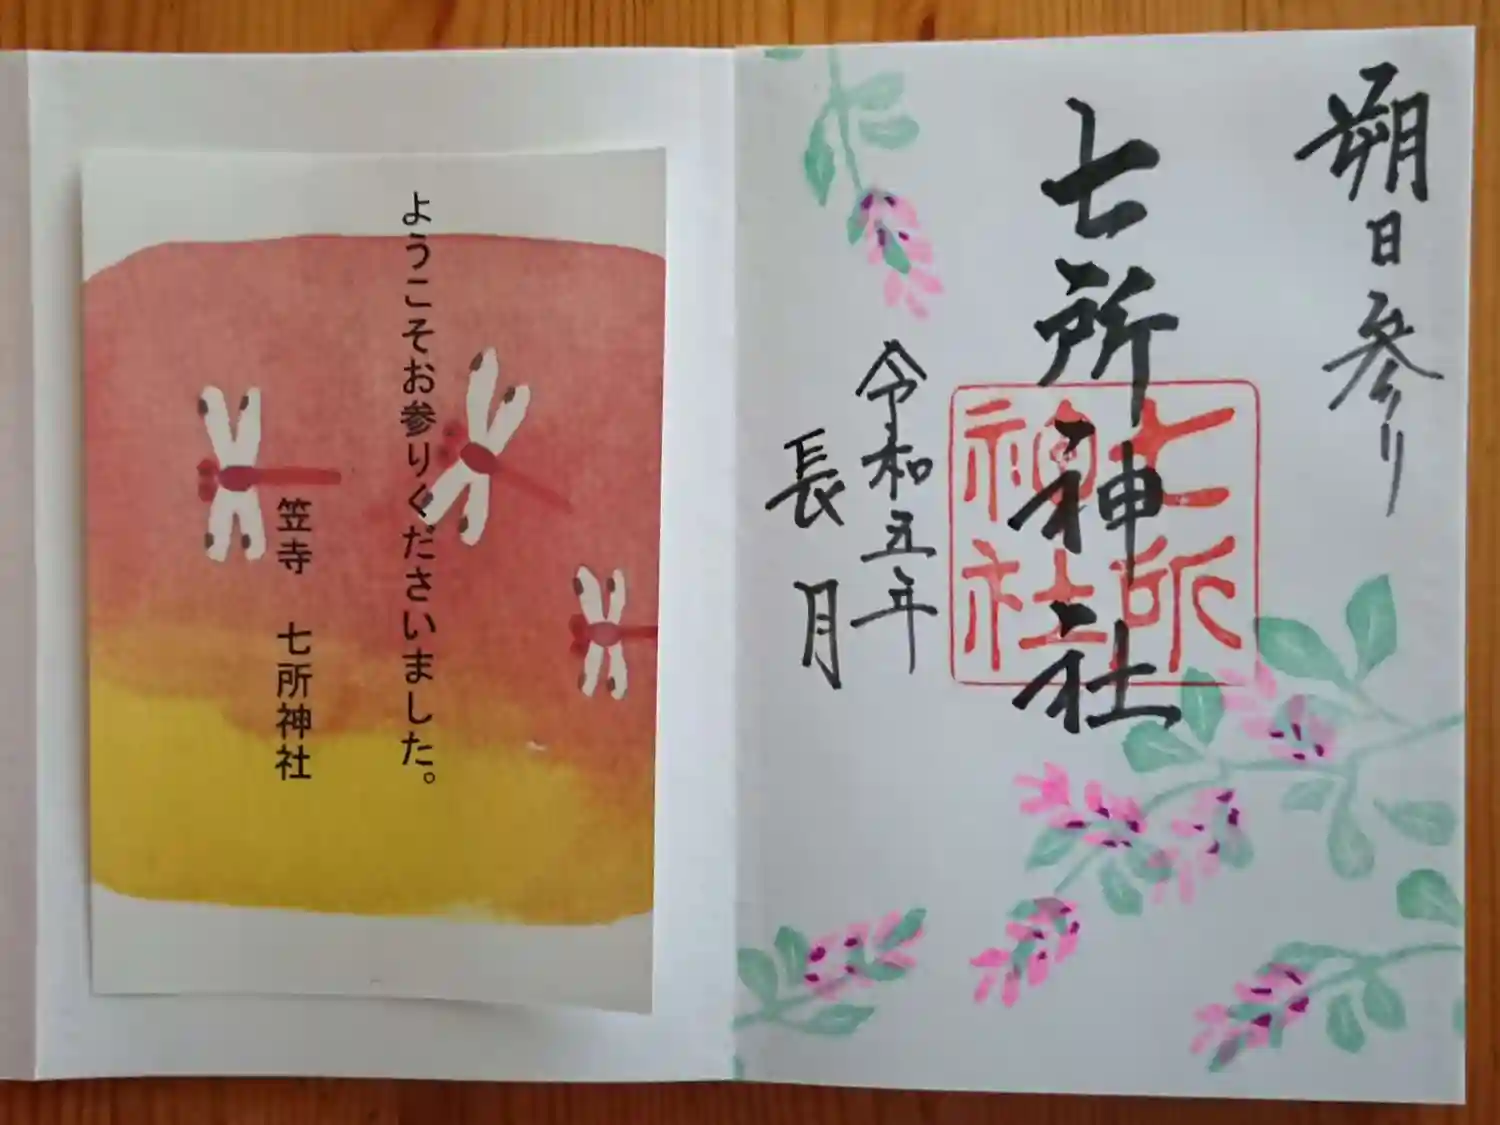 朔日参り
七所神社
七所
神社
令和五年
長月
ようこそお参りくださいました。
笠寺　七所神社